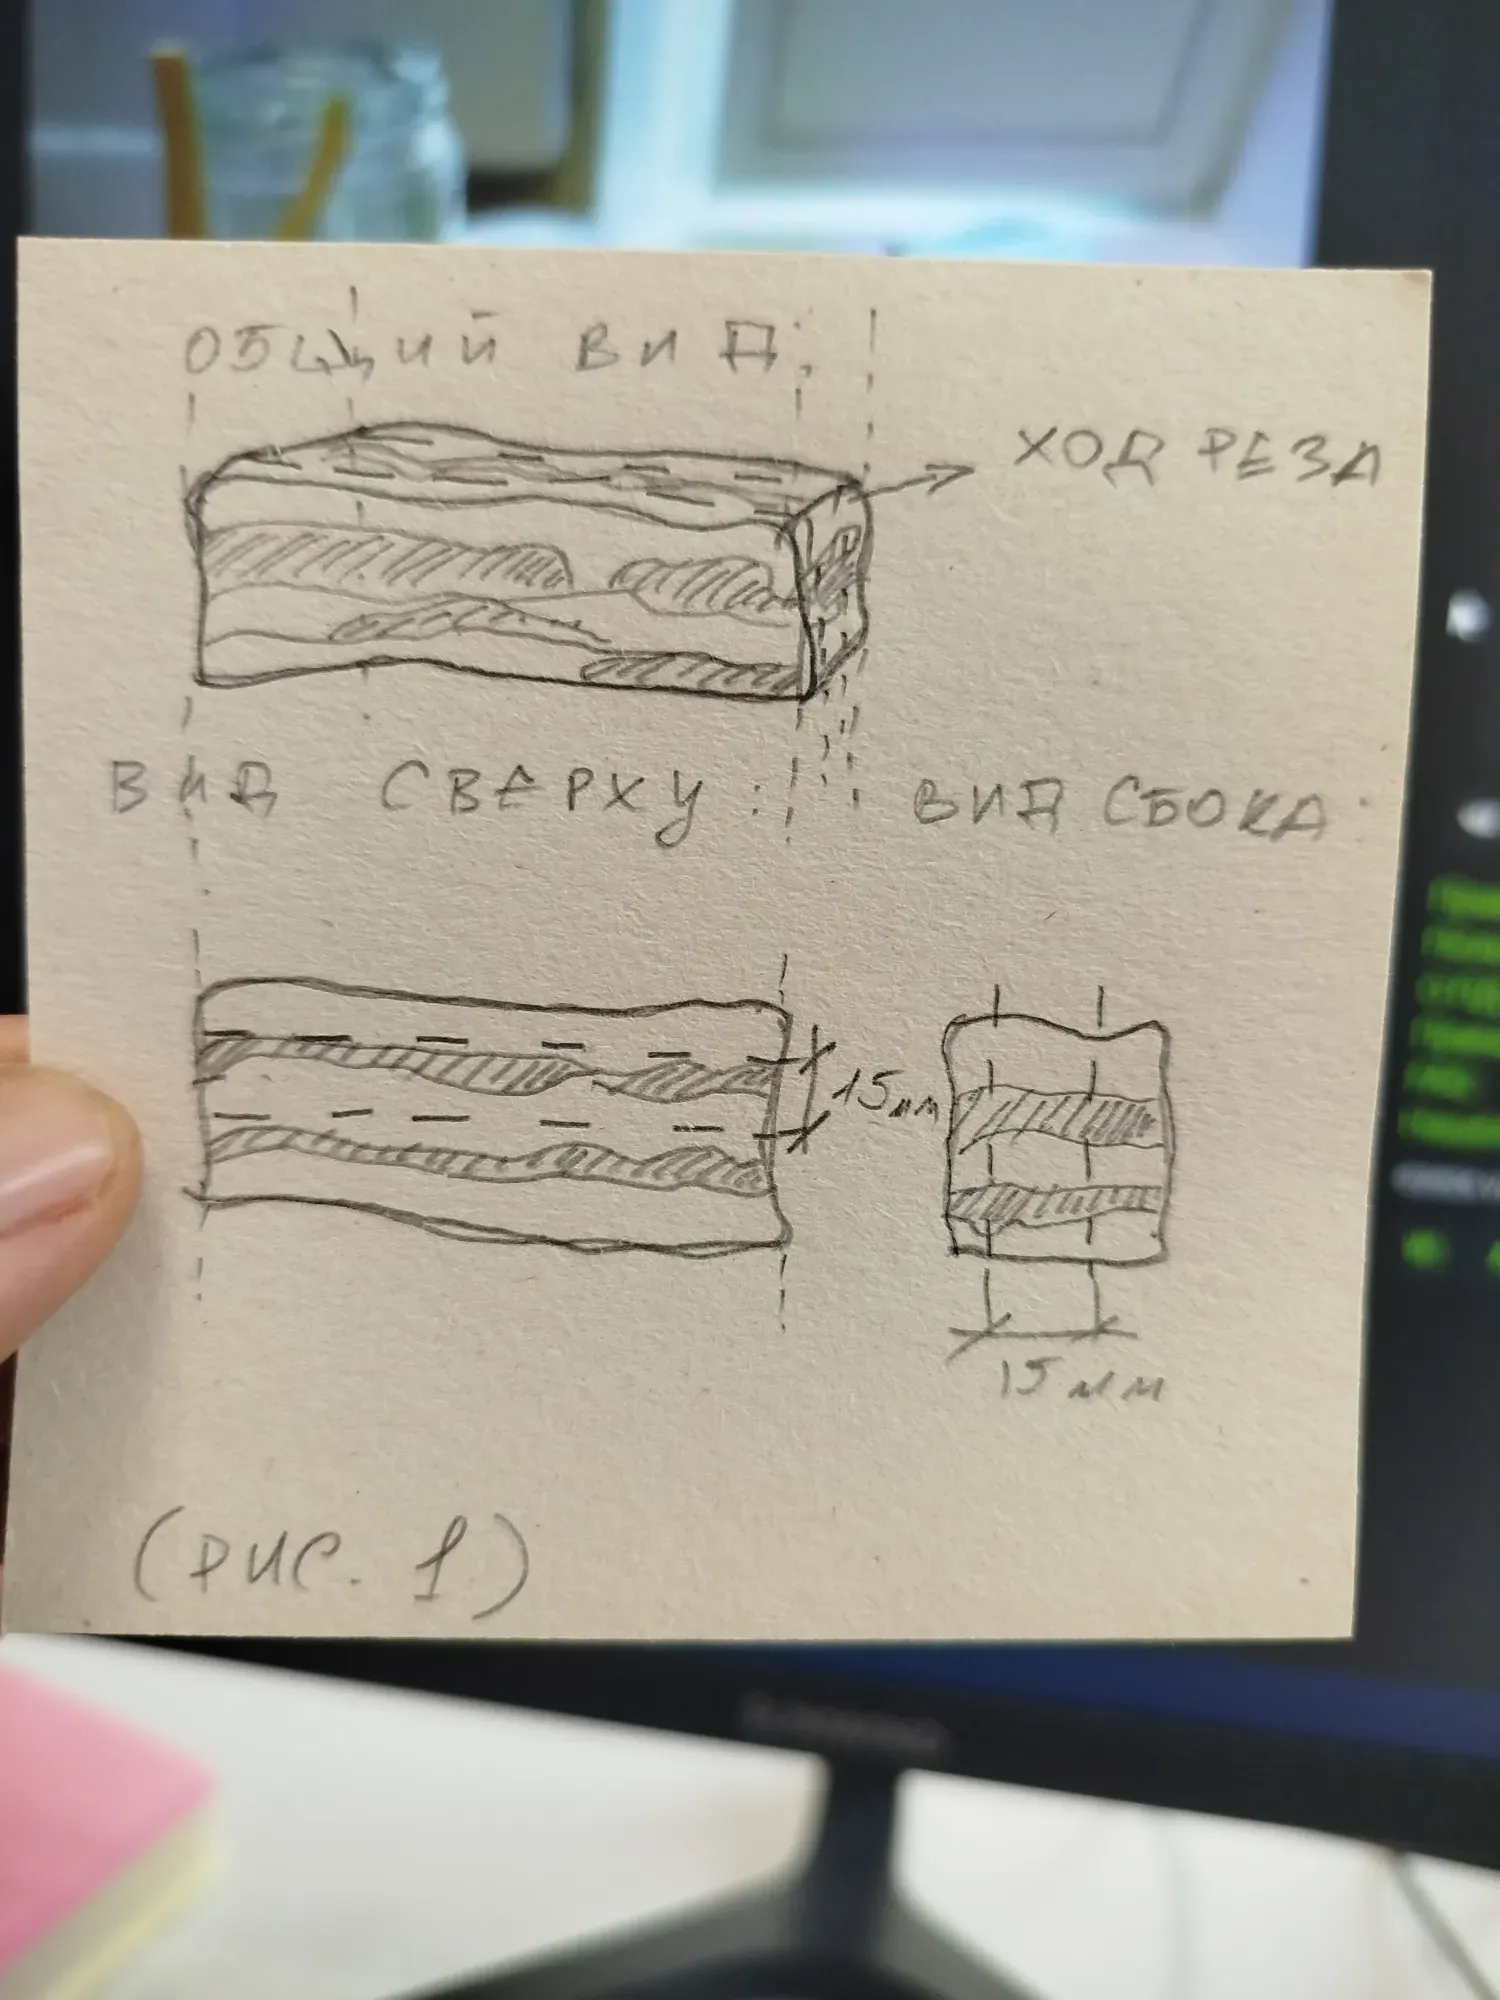 ОБЩИЙ ВИД:
ХОД РЕЗА
ВИД СВЕРХУ:
ВИД СБОКА:
15мм
15мм
(РИС. 1)